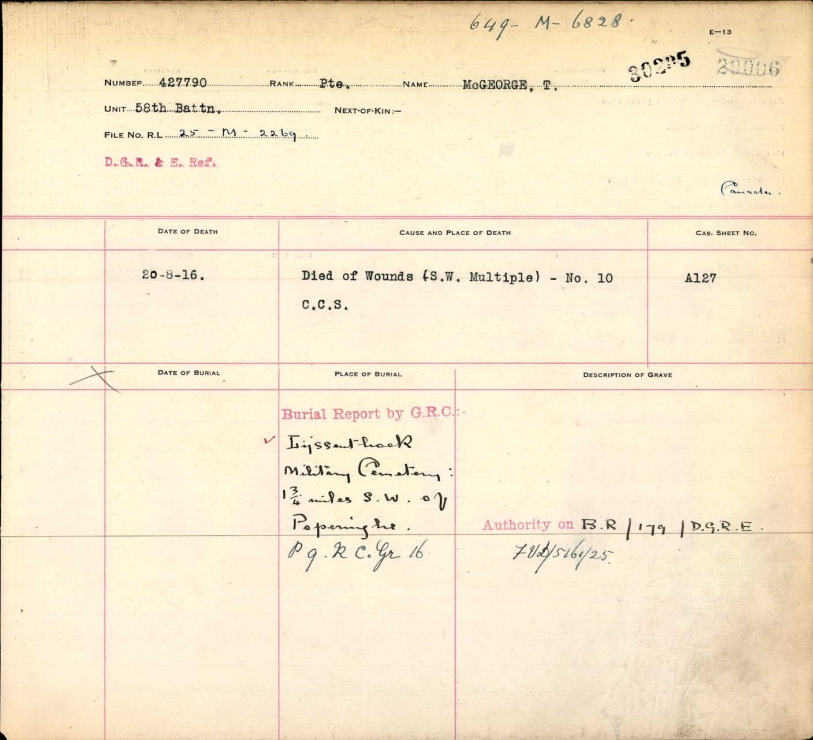 649- M- 6828.
E—13
30285 29006
NUMBER 427790 RANK Pte. NAME McGEORGE, T.
UNIT 58th Battn. NEXT-OF-KIN:—
FILE NO. R.L 25 - M - 2269
D.G.R. & E. Ref.
DATE OF DEATH CAUSE AND PLACE OF DEATH CAS. SHEET NO.
20-8-16. Died of Wounds (S.W. Multiple) - No. 10 A127
C.C.S.
DATE OF BURIAL PLACE OF BURIAL DESCRIPTION OF GRAVE
Burial Report by G.R.C.:-
Lijssenthoek
Military Cemetery:
1 3/4 miles S.W. of
Poperinghe. Authority on B.R/179/D.G.R.E.
P 9. R C. Gr 16